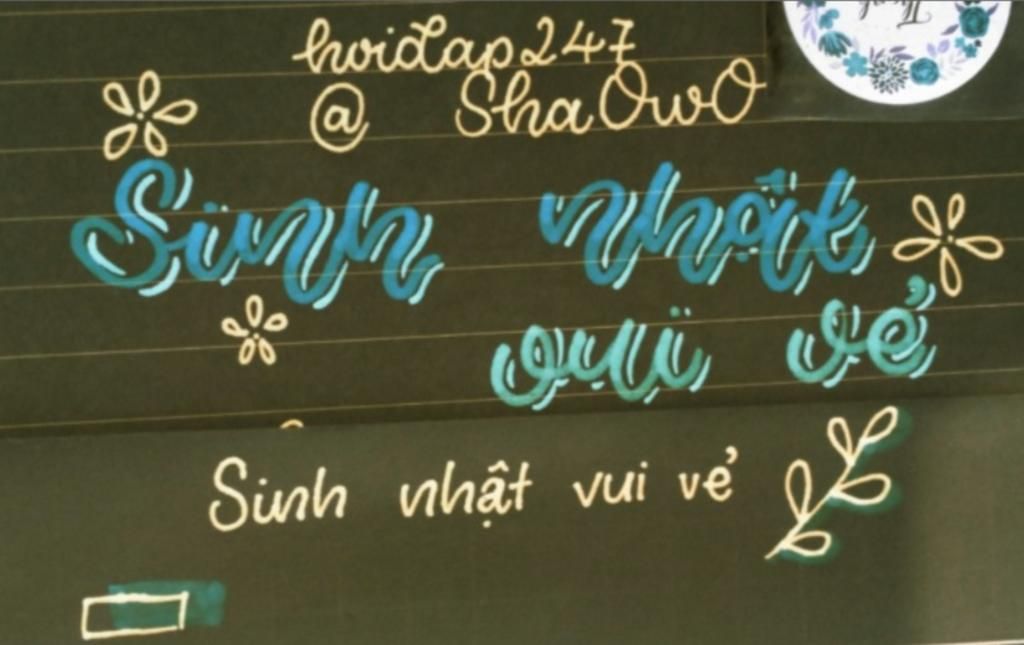 hoidap247
@ ShaOwO
Sinh nhật
vui vẻ
Sinh nhật vui vẻ